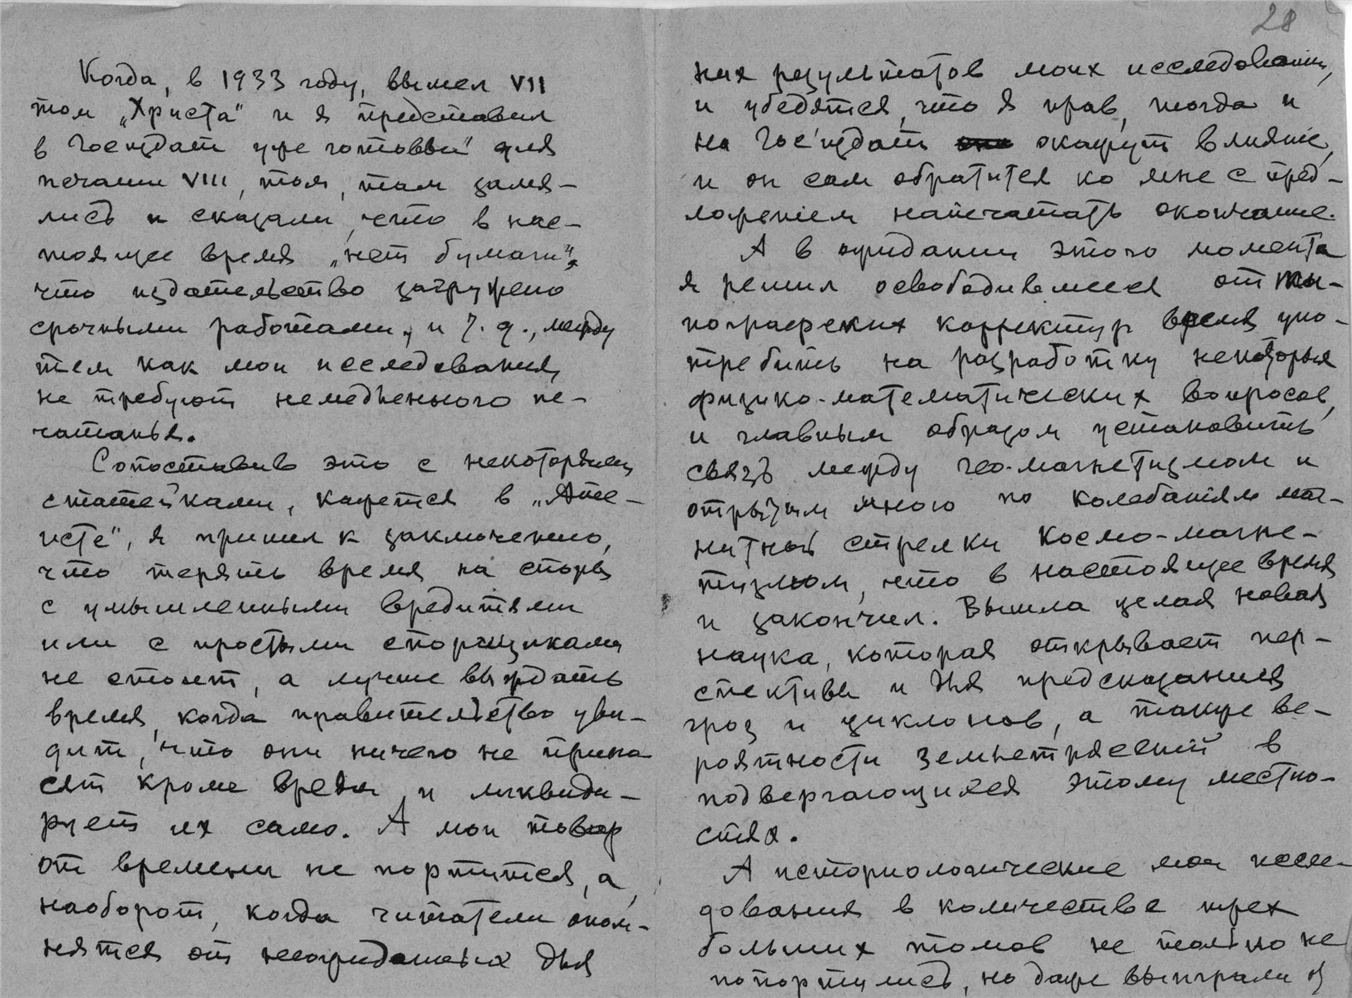 28
Когда, в 1933 году, вышел VII
том „Христа" и я представил
в Госиздат уже готовый для
печати VIII том, там замя-
лись и сказали, что в нас-
тоящее время „нет бумаги",
что издательство загружено
срочными работами, и т. д., между
тем как мои исследования
не требуют немедленного пе-
чатанья.
Сопоставив это с некоторыми
статейками, кажется в „Ате-
исте", я пришел к заключению,
что терять время на споры
с умышленными вредителями
или с простыми спорщиками
не стоит, а лучше выждать
время, когда правительство уви-
дит, что они ничего не прино
сят кроме вреда и ликвиди-
рует их само. А мой товар
от времени не портится, а,
наоборот, когда читатели опом-
нятся от неожиданных для
них результатов моих исследований,
и убедятся, что я прав, тогда и
на Госиздат окажут влияние,
и он сам обратится ко мне с пред-
ложением напечатать окончание.
А в ожидании этого момента
я решил освободившееся от ти-
пографских корректур время упо-
требить на разработку некоторых
физико-математических вопросов,
и главным образом установить
связь между гео-магнетизмом и
открытым мною по колебаниям маг-
нитной стрелки космо-магне-
тизмом, что в настоящее время
и закончил. Вышла целая новая
наука, которая открывает пер-
спективы и для предсказания
гроз и циклонов, а также ве-
роятности землетрясений в
подвергающихся этому местно-
стях.
А историологические мои иссле-
дования в количестве трех
больших томов не только не
попортились, но даже выиграли от